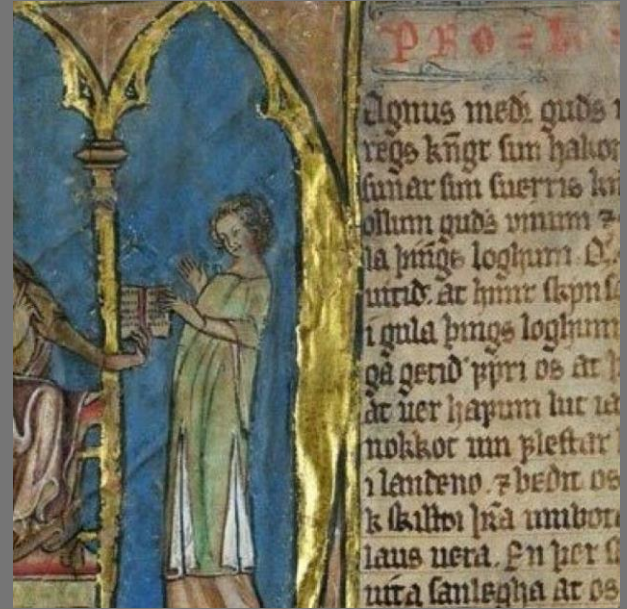 PRO=L
agnus med guds
regs kṅgr sun hakon
sunar sun suerris kn
ollum guds uinum ⁊
la þings loghum.
uitið. at hinir skyns
i gula þings loghum
ga getið
at uer hafum lut
nokkot um flestar
i landeno. ⁊ bedit os
k skilltoi umbot
laus uera. En þer s
uita sanlegha at os